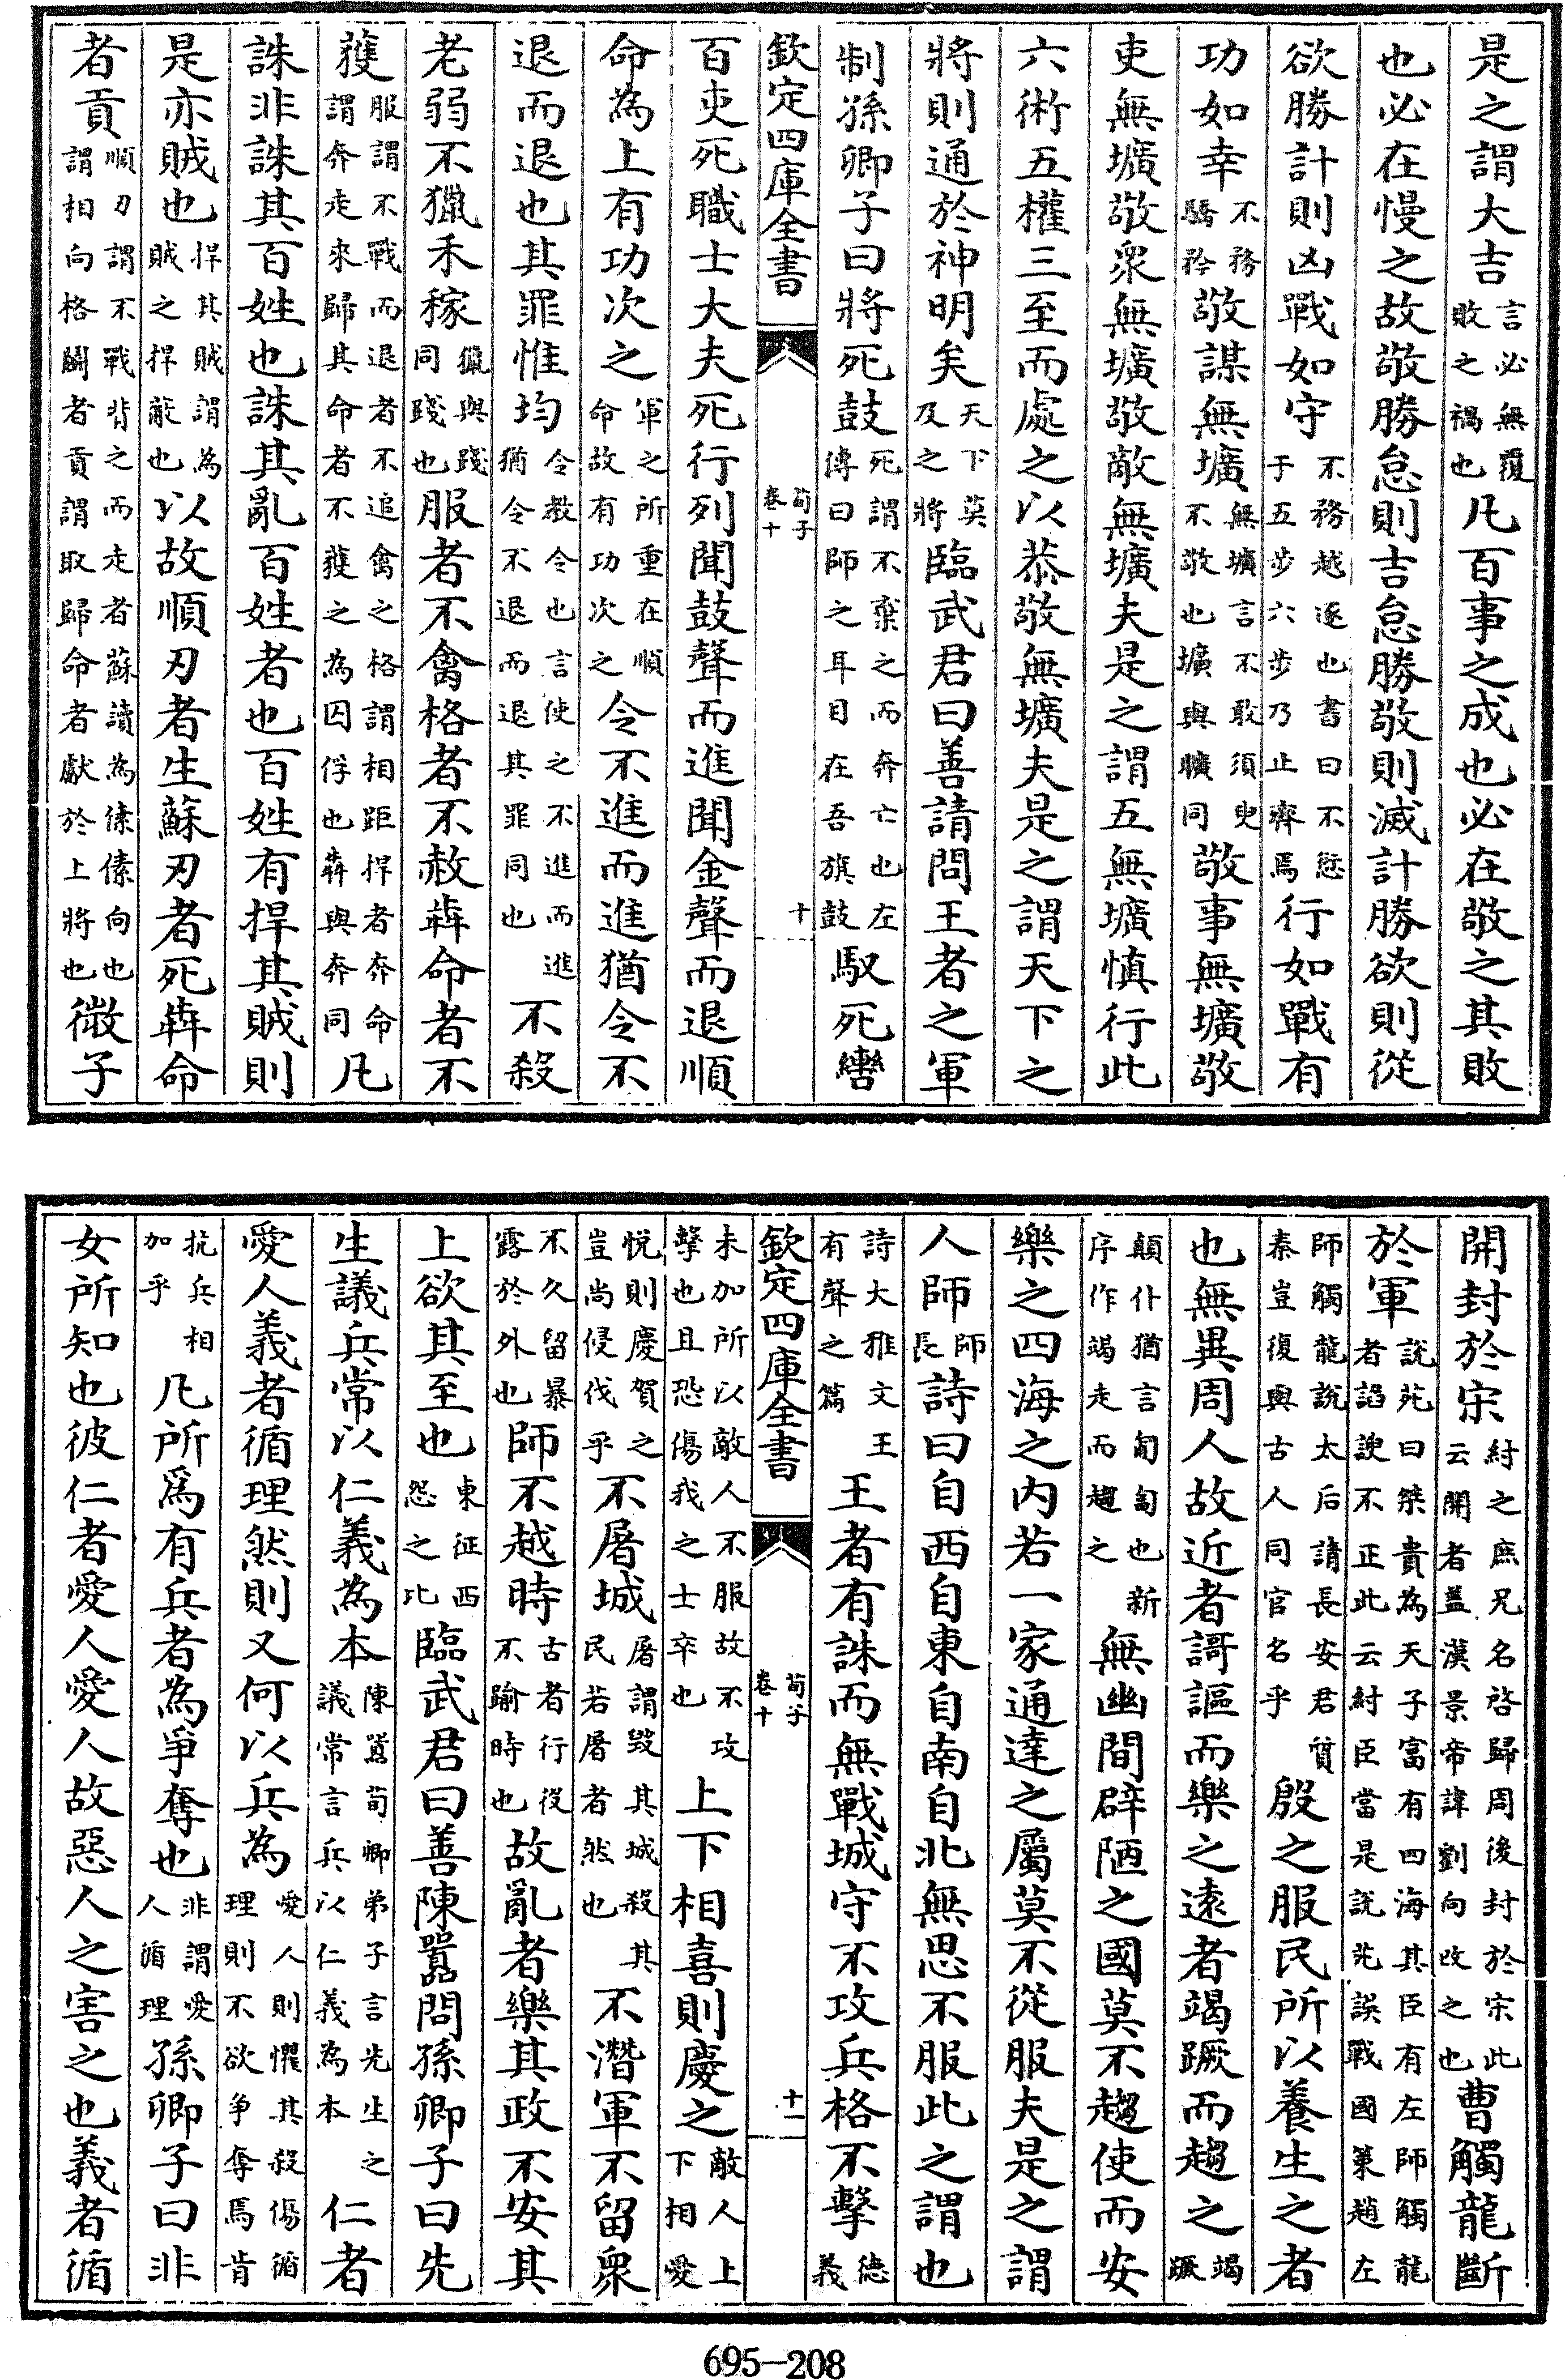 是之謂大吉言必無覆敗之禍也凡百事之成也必在敬之其敗
也必在慢之故敬勝怠則吉怠勝敬則滅計勝欲則從
欲勝計則凶戰如守不務越逐也書曰不愆于五步六步乃止齊焉行如戰有
功如幸不務驕矜敬謀無壙無壙言不敢須臾不敬也壙與曠同敬事無壙敬
吏無壙敬衆無壙敬敵無壙夫是之謂五無壙慎行此
六術五權三至而處之以恭敬無壙夫是之謂天下之
將則通於神明矣天下莫及之將臨武君曰善請問王者之軍
制孫卿子曰將死鼓死謂不棄之而奔亡也左傳曰師之耳目在吾旗鼓馭死轡
欽定四庫全書
荀子
卷十
十
百吏死職士大夫死行列聞鼓聲而進聞金聲而退順
命為上有功次之軍之所重在順命故有功次之令不進而進猶令不
退而退也其罪惟均令教令也言使之不進而進猶令不退而退其罪同也不殺
老弱不獵禾稼獵與踐同踐也服者不禽格者不赦犇命者不
獲服謂不戰而退者不追禽之格謂相距捍者奔命謂奔走來歸其命者不獲之為囚俘也犇與奔同凡
誅非誅其百姓也誅其亂百姓者也百姓有捍其賊則
是亦賊也捍其賊謂為賊之捍蔽也以故順刃者生蘇刃者死犇命
者貢順刃謂不戰背之而走者蘇讀為傃傃向也謂相向格鬭者貢謂取歸命者獻於上將也微子
開封於宋紂之庶兄名啓歸周後封於宋此云開者蓋漢景帝諱劉向改之也曹觸龍斷
於軍說苑曰桀貴為天子富有四海其臣有左師觸龍者諂諛不正此云紂臣當是說苑誤戰國策趙左
師觸龍說太后請長安君質秦豈復與古人同官名乎殷之服民所以養生之者
也無異周人故近者謌謳而樂之遠者竭蹶而趨之竭蹶
顛仆猶言匍匐也新序作竭走而趨之無幽閒辟陋之國莫不趨使而安
樂之四海之内若一家通達之屬莫不從服夫是之謂
人師師長詩曰自西自東自南自北無思不服此之謂也
詩大雅文王有聲之篇王者有誅而無戰城守不攻兵格不擊德義
欽定四庫全書
荀子
卷十
十一
未加所以敵人不服故不攻擊也且恐傷我之士卒也上下相喜則慶之敵人上下相愛
悦則慶賀之豈尚侵伐乎不屠城屠謂毀其城殺其民若屠者然也不潛軍不留衆
不久留暴露於外也師不越時古者行役不踰時也故亂者樂其政不安其
上欲其至也東征西怨之比臨武君曰善陳囂問孫卿子曰先
生議兵常以仁義為本陳囂荀卿弟子言先生之議常言兵以仁義為本仁者
愛人義者循理然則又何以兵為愛人則懼其殺傷循理則不欲争奪焉肯
抗兵相加乎凡所為有兵者為爭奪也非謂愛人循理孫卿子曰非
女所知也彼仁者愛人愛人故惡人之害之也義者循
695-208